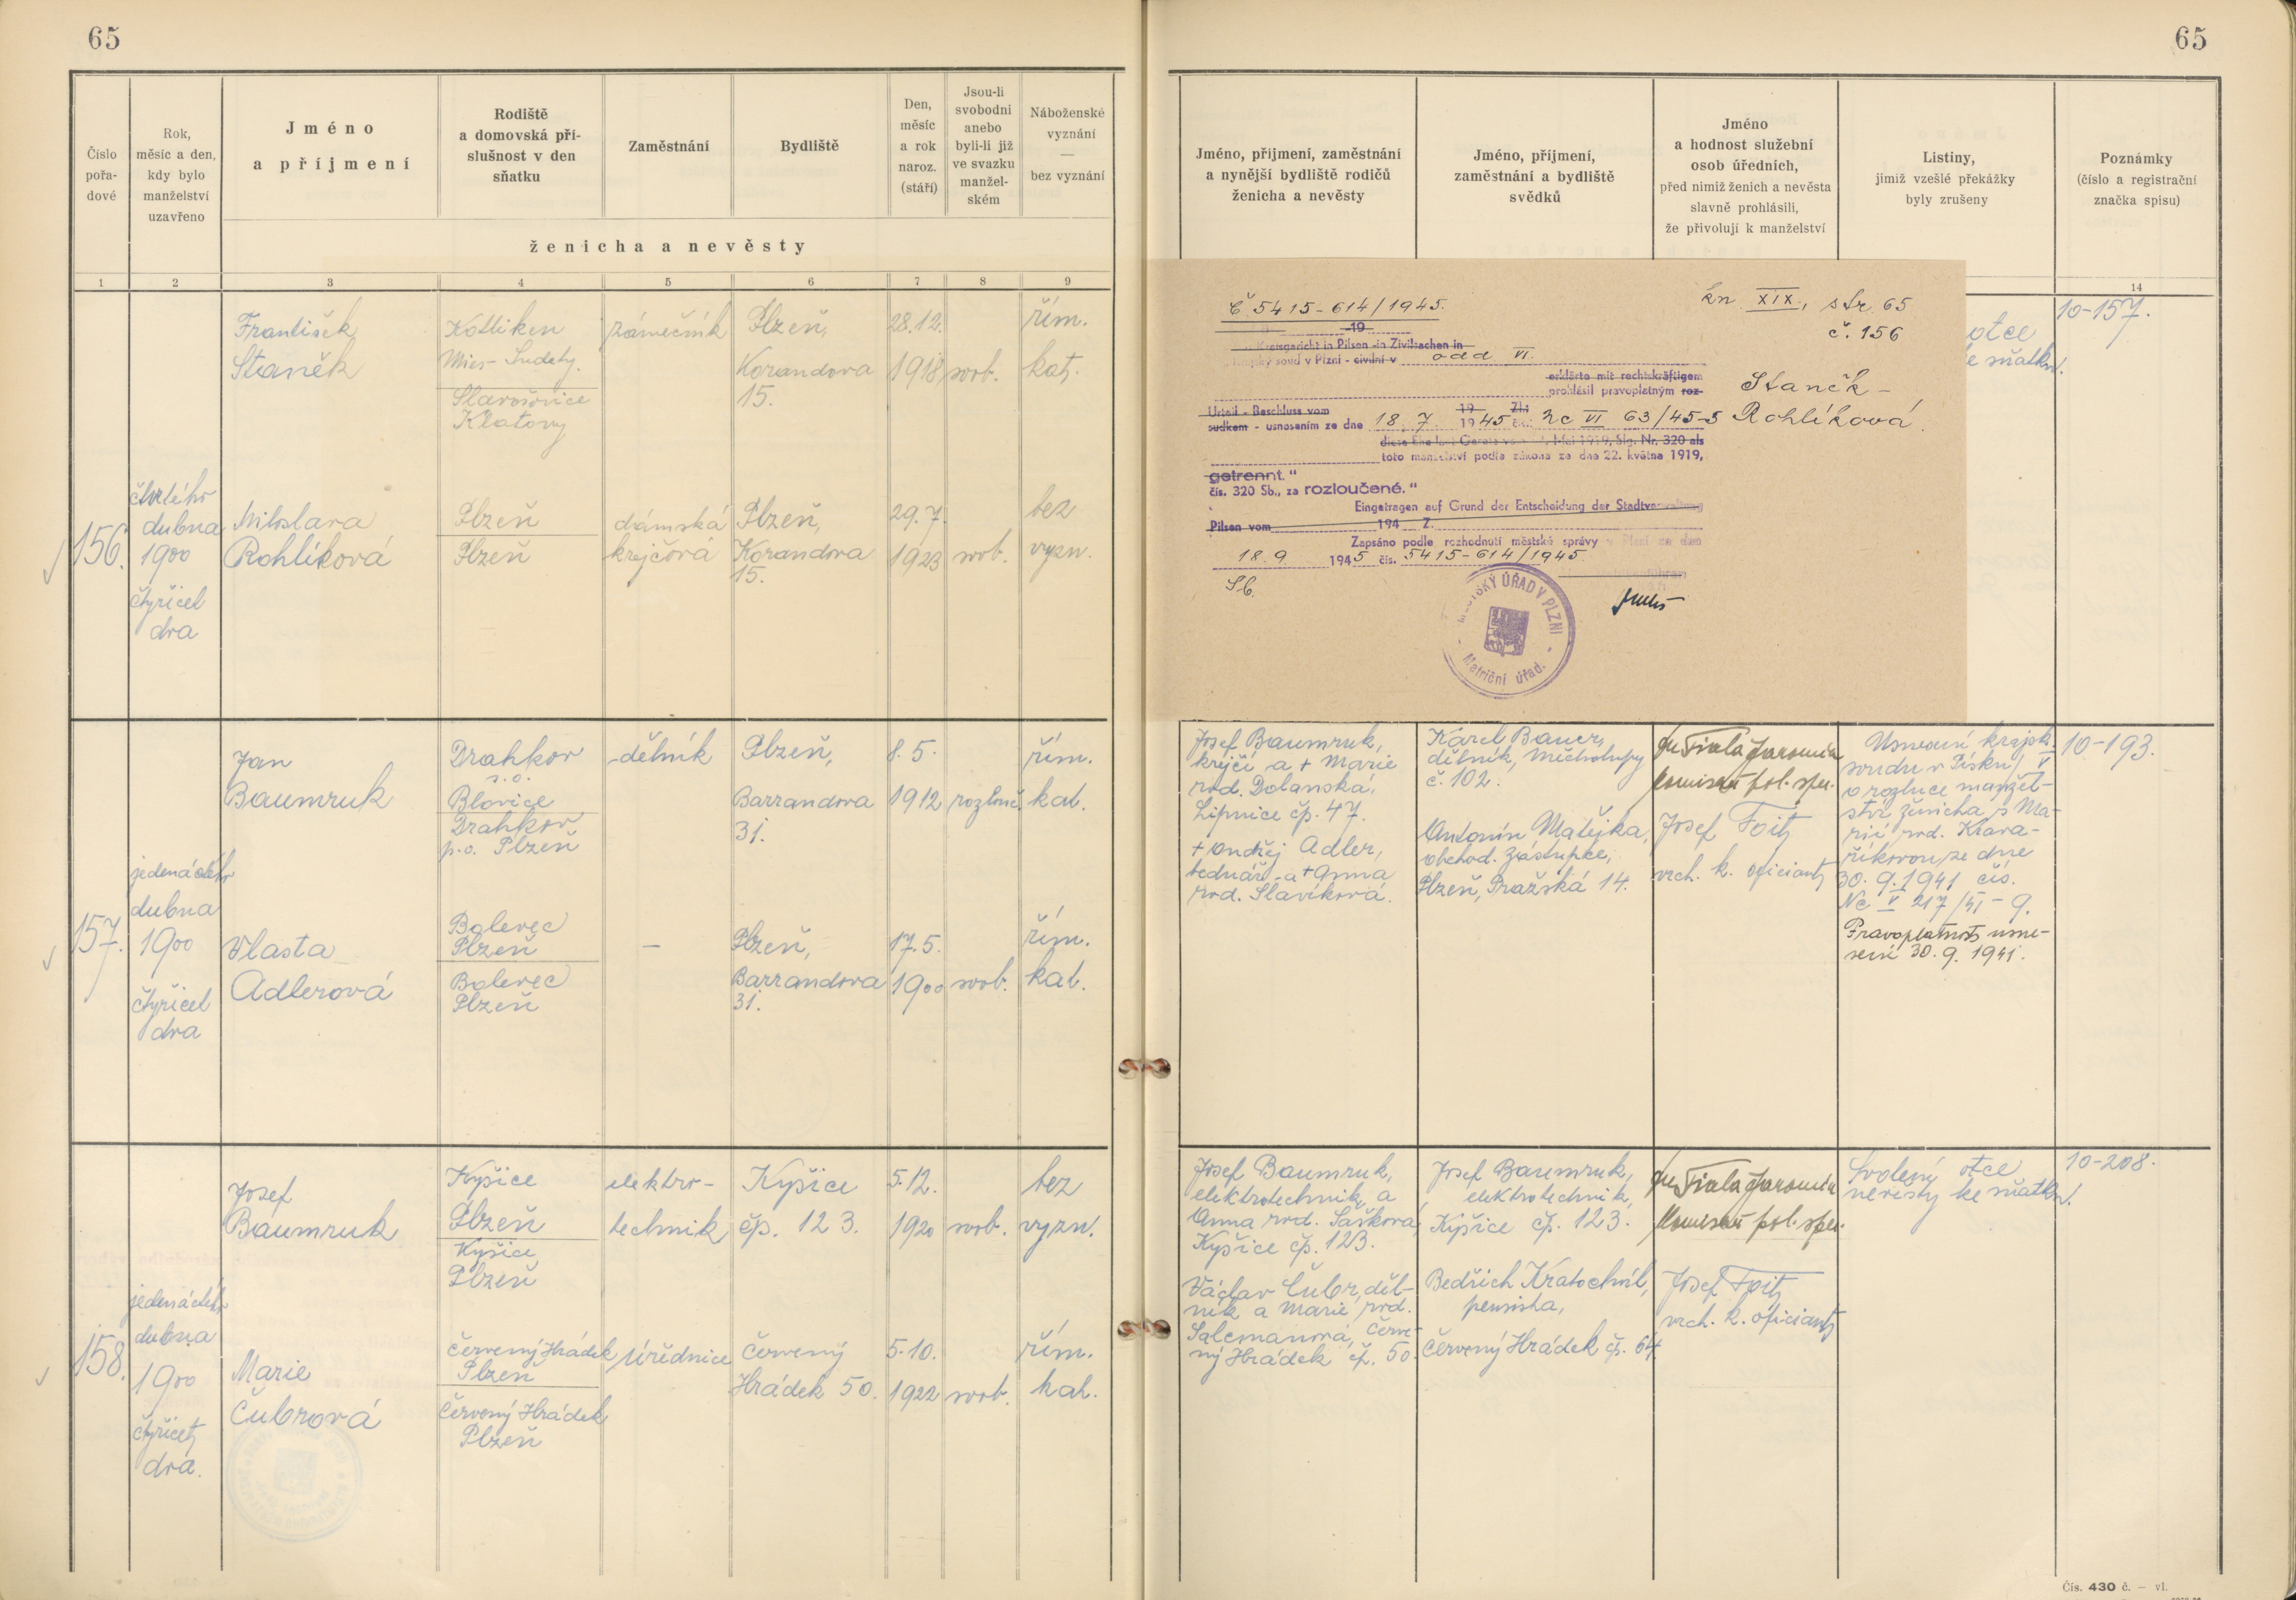 65
65
Číslo
pořa-
dové
Rok,
měsíc a den,
kdy bylo
manželství
uzavřeno
Jméno
a příjmení
Rodiště
a domovská pří-
slušnost v den
sňatku
Zaměstnání
Bydliště
Den,
měsíc
a rok
naroz.
(stáří)
Jsou-li
svobodni
anebo
byli-li již
ve svazku
manžel-
ském
Náboženské
vyznání
—
bez vyznání
ženicha a nevěsty
1 2 3 4 5 6 7 8 9
Jméno, příjmení, zaměstnání
a nynější bydliště rodičů
ženicha a nevěsty
Jméno, příjmení,
zaměstnání a bydliště
svědků
Jméno
a hodnost služební
osob úředních,
před nimiž ženich a nevěsta
slavně prohlásili,
že přivolují k manželství
Listiny,
jimiž vzešlé překážky
byly zrušeny
Poznámky
(číslo a registrační
značka spisu)
14
156.
čtvrtého
dubna
1900
čtyřicet
dva
František
Staněk
Kotliken
Mies - Sudety.
Klatovy
zámečník
Plzeň,
Korandova
15.
28.12.
1918
svob.
řím.
kat.
Miloslava
Rohlíková
Plzeň
Plzeň
dámská
krejčová
Plzeň,
Korandova
15.
29.7.
1923
svob.
bez
vyzn.
Č. 5415-614/1945.
kn. XIX., str. 65
č. 156
19
Kreisgericht in Pilsen - in Zivilsachen in
Krajský soud v Plzni - civilní v odd VI.
erklärte mit rechtskräftigem
prohlásil pravoplatným roz-
Staněk -
Rohlíková.
Urteil - Beschluss vom 19 Zl.:
sudkem - usnesením ze dne 18. 7. 1945 čís.: Nc VI 63/45-5
toto manželství podle zákona ze dne 22. května 1919,
getrennt."
čís. 320 Sb., za rozloučené."
Eingetragen auf Grund der Entscheidung der Stadtverwaltung
Pilsen vom 194 Z.
Zapsáno podle rozhodnutí městské správy v Plzni ze dne
18. 9. 1945 čís. 5415-614/1945.
Sb.
MĚSTSKÝ ÚŘAD V PLZNI
Matriční úřad.
otce
sňatku.
10-157.
157.
jedenáctého
dubna
1900
čtyřicet
dva
Jan
Baumruk
Drahkov
s.o.
Blovice
Drahkov
p.o. Plzeň
dělník
Plzeň,
Barrandova
31.
8.5.
1912
rozlouč.
řím.
kat.
Vlasta
Adlerová
Bolevec
Plzeň
Bolevec
Plzeň
—
Plzeň,
Barrandova
31.
17.5.
1900
svob.
řím.
kat.
Josef Baumruk,
krejčí a + Marie
rod. Dolanská,
Lipnice čp. 47.
+ Ondřej Adler,
bednář a + Anna
rod. Slavíková.
Karel Bauer,
dělník, Měcholupy
č. 102.
Antonín Matějka,
obchod. zástupce,
Plzeň, Pražská 14.
Fiala Jaromír
komisař pol. spr.
Josef Foit
vrch. k. oficiant
Usnesení krajsk.
soudu v Písku, V
o rozluce manžel-
ství ženicha s Ma-
rií rod. Krava-
říkovou ze dne
30. 9. 1941 čís.
Nc V 217/41 - 9.
Pravoplatnost usne-
sení 30. 9. 1941.
10-193.
158.
jedenáctého
dubna
1900
čtyřicet
dva.
Josef
Baumruk
Kyšice
Plzeň
Kyšice
Plzeň
elektro-
technik
Kyšice
čp. 123.
5.12.
1920
svob.
bez
vyzn.
Marie
Čubrová
Červený Hrádek
Plzeň
Červený Hrádek
Plzeň
úřednice
Červený
Hrádek 50.
5.10.
1922
svob.
řím.
kat.
Josef Baumruk,
elektrotechnik a
Anna rod. Šašková,
Kyšice čp. 123.
Václav Čubr, děl-
ník a Marie rod.
Salcmanová, Červe-
ný Hrádek čp. 50.
Josef Baumruk,
elektrotechnik,
Kyšice čp. 123.
Bedřich Kratochvíl,
pensista,
Červený Hrádek čp. 64.
Fiala Jaromír
komisař pol. spr.
Josef Foit
vrch. k. oficiant
Svolení otce
nevěsty ke sňatku.
10-208.
Čís. 430 č. — vl.